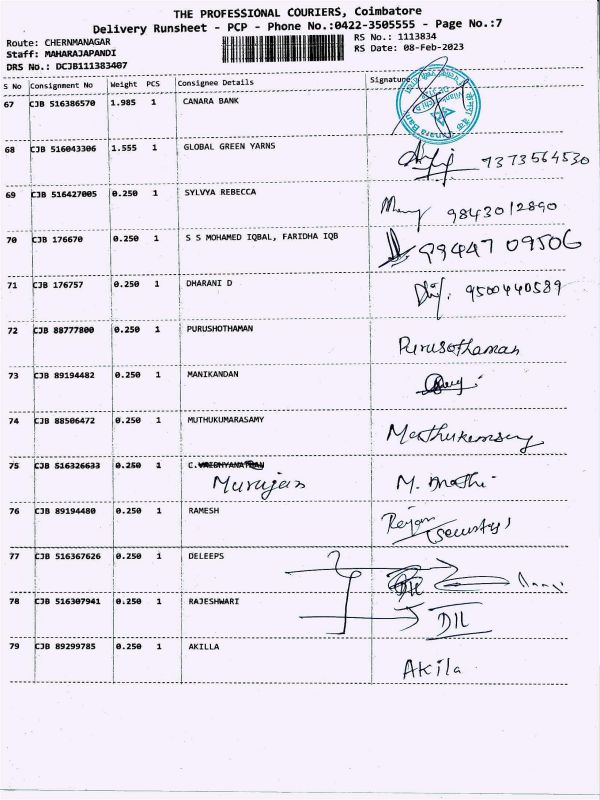 THE PROFESSIONAL COURIERS, Coimbatore
Delivery Runsheet - PCP - Phone No.:0422-3505555 - Page No.:7
Route: CHERNMANAGAR
RS No.: 1113834
Staff: MAHARAJAPANDI
RS Date: 08-Feb-2023
DRS No.: DCJB111383407
S No Consignment No Weight PCS Consignee Details Signature
67 CJB 516386570 1.985 1 CANARA BANK
68 CJB 516043306 1.555 1 GLOBAL GREEN YARNS 7373564530
69 CJB 516427005 0.250 1 SYLVYA REBECCA 9843012890
70 CJB 176670 0.250 1 S S MOHAMED IQBAL, FARIDHA IQB 99447 09506
71 CJB 176757 0.250 1 DHARANI D 9500440589
72 CJB 88777800 0.250 1 PURUSHOTHAMAN Purusothaman
73 CJB 89194482 0.250 1 MANIKANDAN
74 CJB 88506472 0.250 1 MUTHUKUMARASAMY
75 CJB 516326633 0.250 1 C.VAIDHYANATHAN
Murujan
76 CJB 89194480 0.250 1 RAMESH
77 CJB 516367626 0.250 1 DELEEPS
78 CJB 516307941 0.250 1 RAJESHWARI
79 CJB 89299785 0.250 1 AKILLA Akila